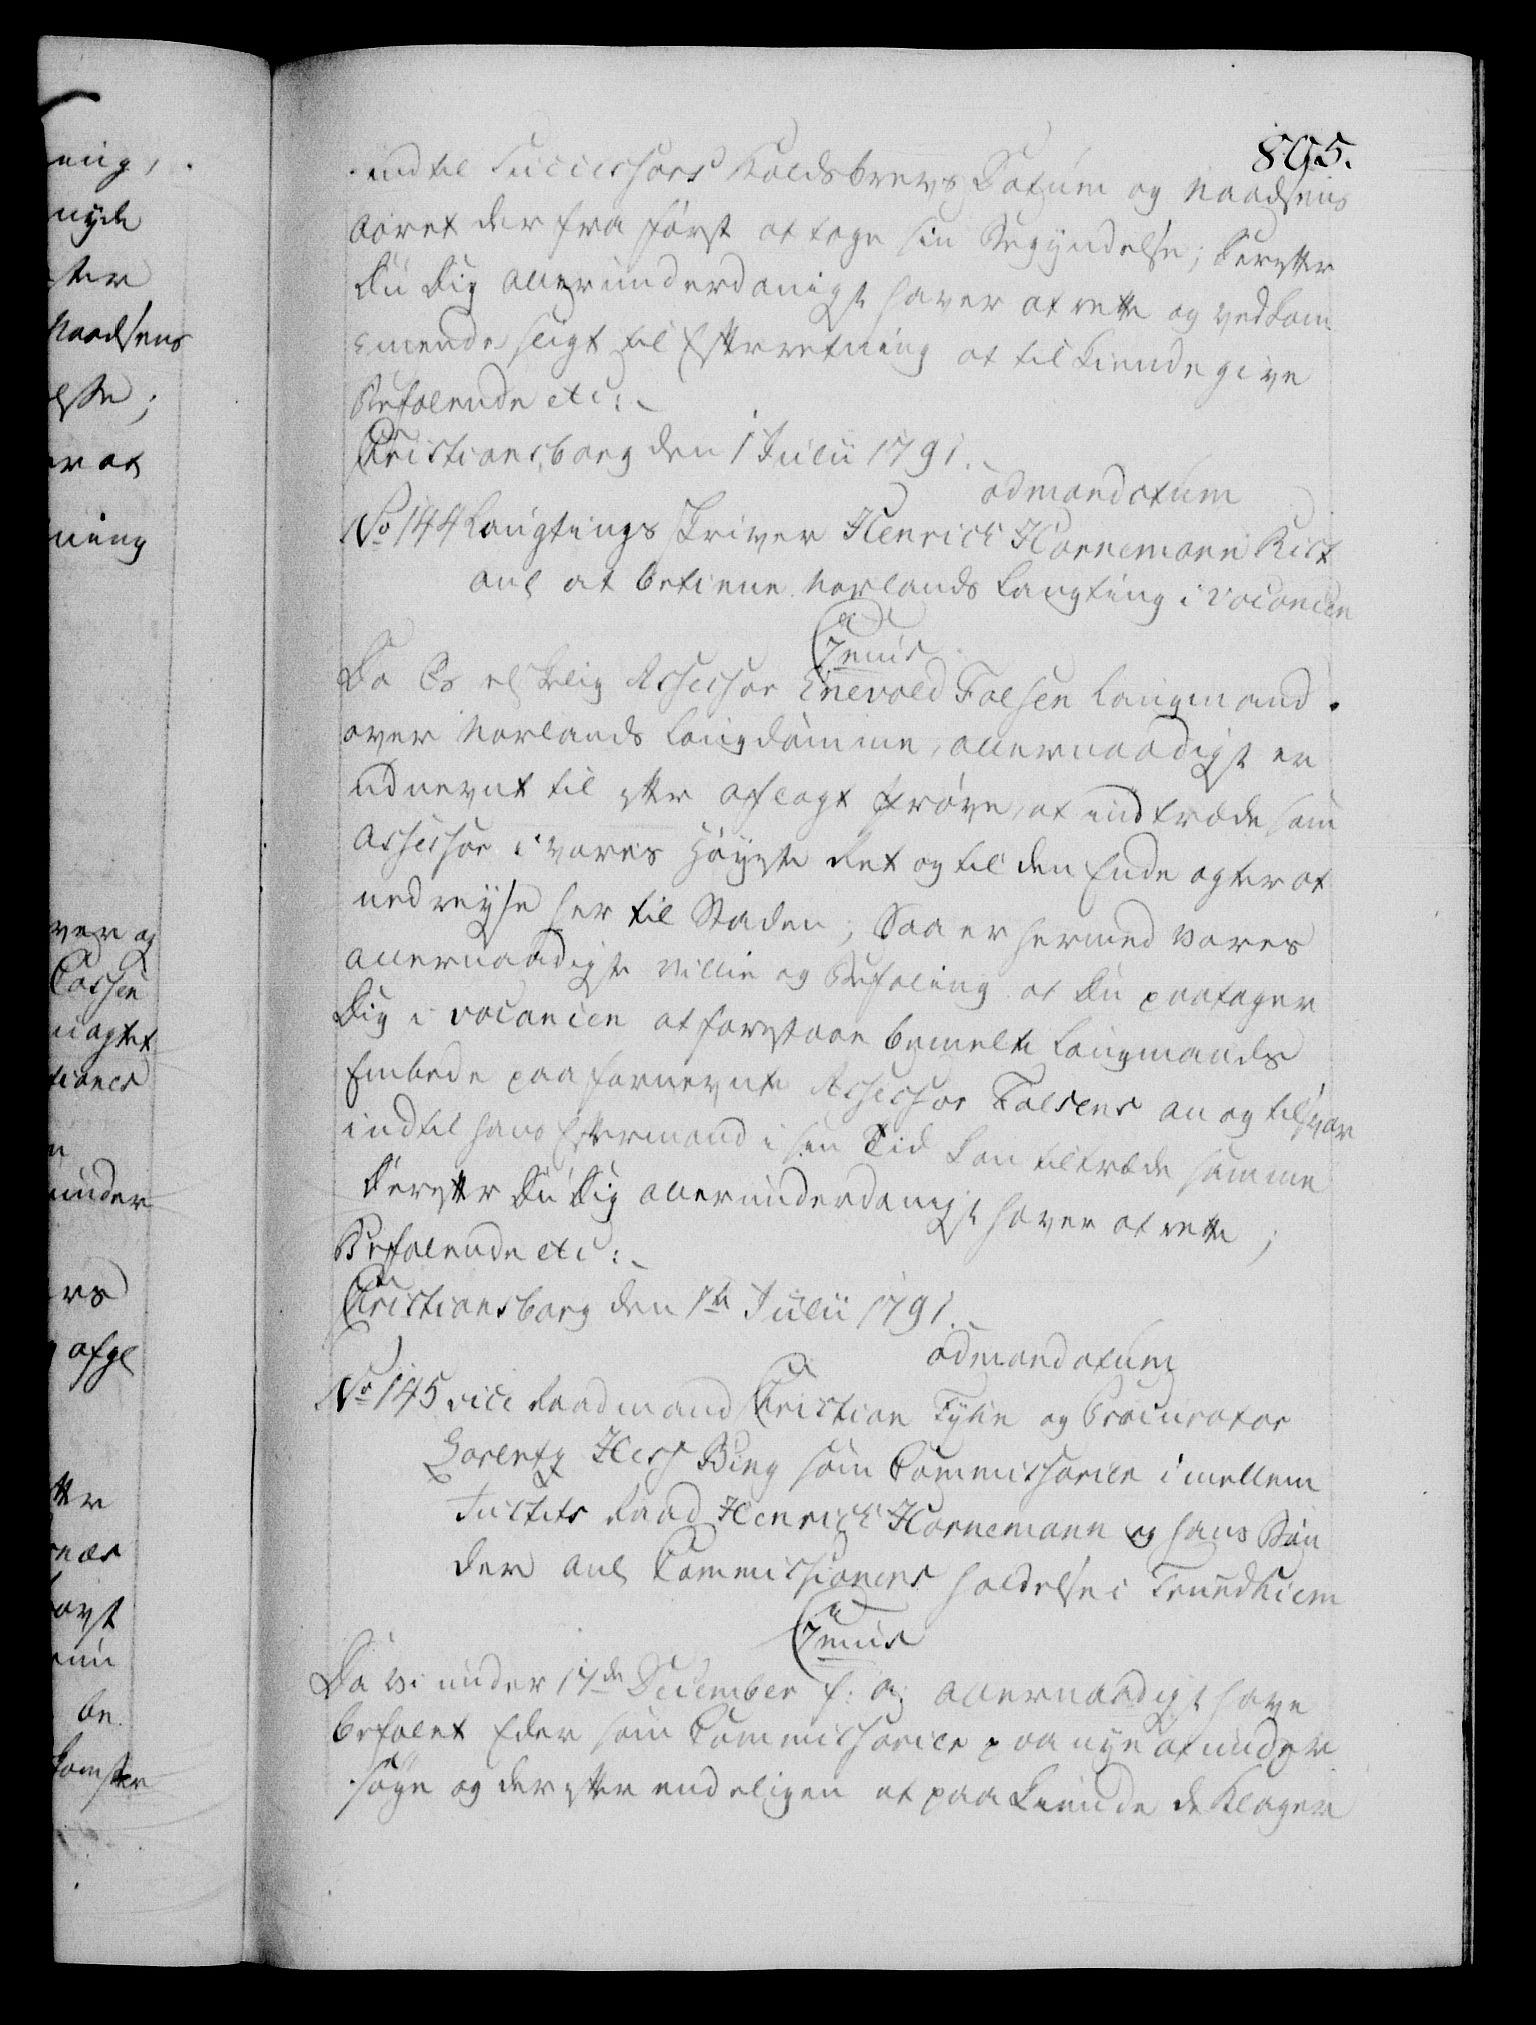 895.
indtil Successors Kaldsbrevs Datum og Naadsens
Aaret der fra først at tage sin Begyndelse; Derefter
Du dig allerunderdanigst haver at rette og vedkom
mende sligt til Efterretning at tilkiendegive
Befalende etc:
Christiansborg den 1 Julii 1791.
ad mandatum
No 144 Laugtings skriver Henrich Hornemann Rist
anl at betiene Norlands Laugting i vacancen
C 7mus
Da Os elskelig Assessor Enevold Falsen Laugmand
over Norlands Laugdømme, allernaadigst er
udnevnt til efter aflagt Prøve, at indtræde som
Assessor i vores Høyeste Ret og til den Ende agter at
nedreyse her til Staden; Saa er hermed vores
allernaadigste Villie og Befaling at Du paatager
Dig i vacancen at forestaae bemelte Laugmands
Embede paa fornevnte Assessor Falsens an og tilsvar
indtil hans Eftermand i sin Tid kan tiltræde samme
Derefter Du Dig allerunderdanigst haver at rette;
Befalende etc:
Christiansborg den 1te Julii 1791.
ad mandatum
No 145 vice Raadmand Christian Tyhn og Procurator
Lorentz Hess Bing som Commissarier imellem
Justits Raad Henrich Hornemann og hans Bøn
der anl Commissionens holdelse i Trundhiem
C 7mus
Da vi under 17de December f: A: allernaadigst have
befalet Eder som Commissarier paa nye at under
søge og derefter endeligen at paakiende de Klager